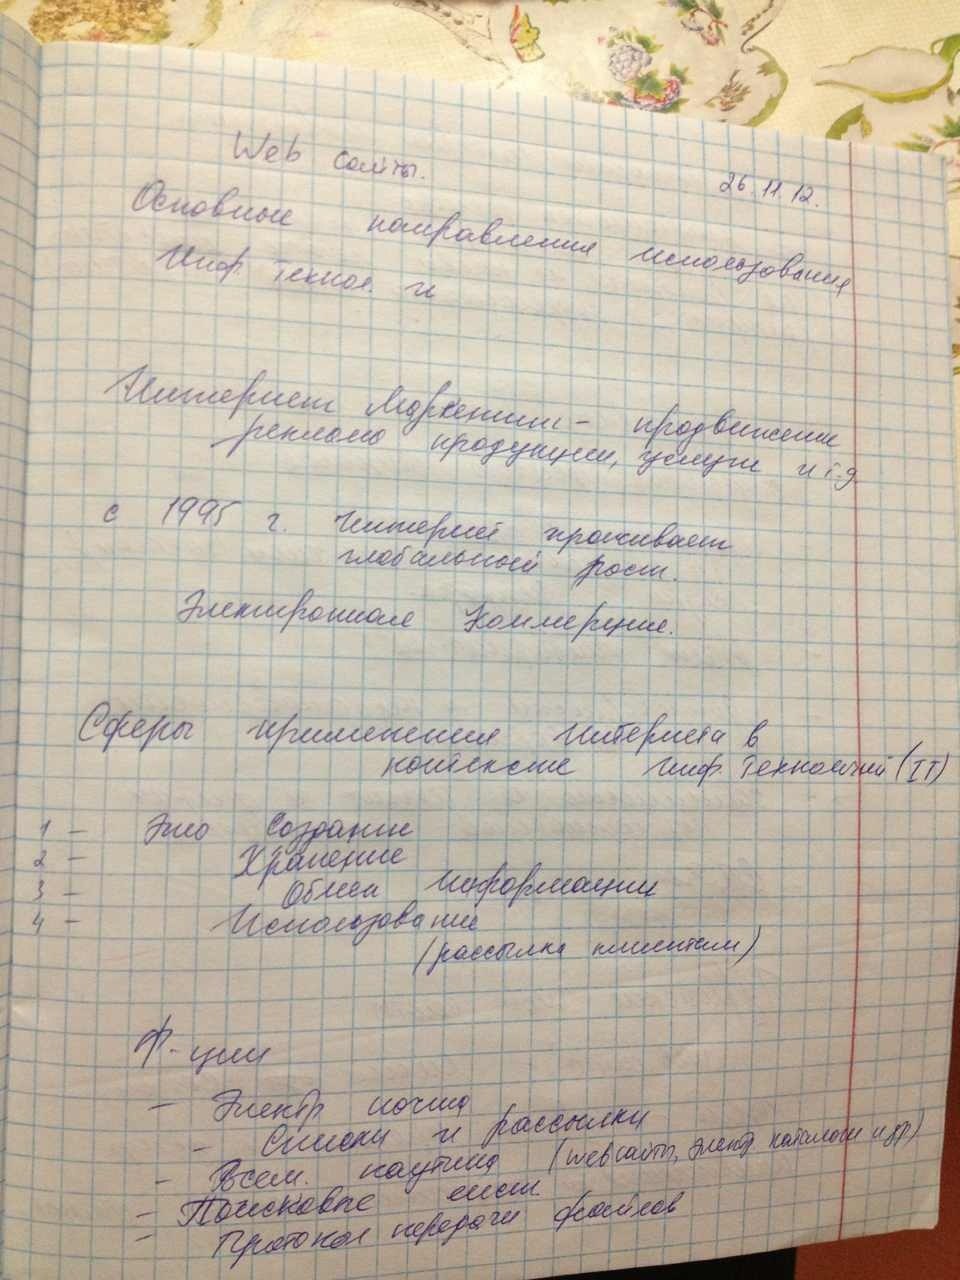 Web сайты.
26.11.12.
Основные направления использования
Инф. технол. и
Интернет Маркетинг - продвижение
реклама продукции, услуги и т.д.
с 1995 г. Интернет проживает
глобальный рост.
Электронная Коммерция.
Сферы применения Интернета в
контексте инф. технологий (IT)
1 - Это Создание
2 - Хранение
3 - Обмен Информации
4 - Использование
(рассылка клиентам)
Ф-ции
- Электр почта
- Списки и рассылки
- Всем. паутина (web сайты, электр каталоги и др)
- Поисковые сист.
- Протокол передачи файлов